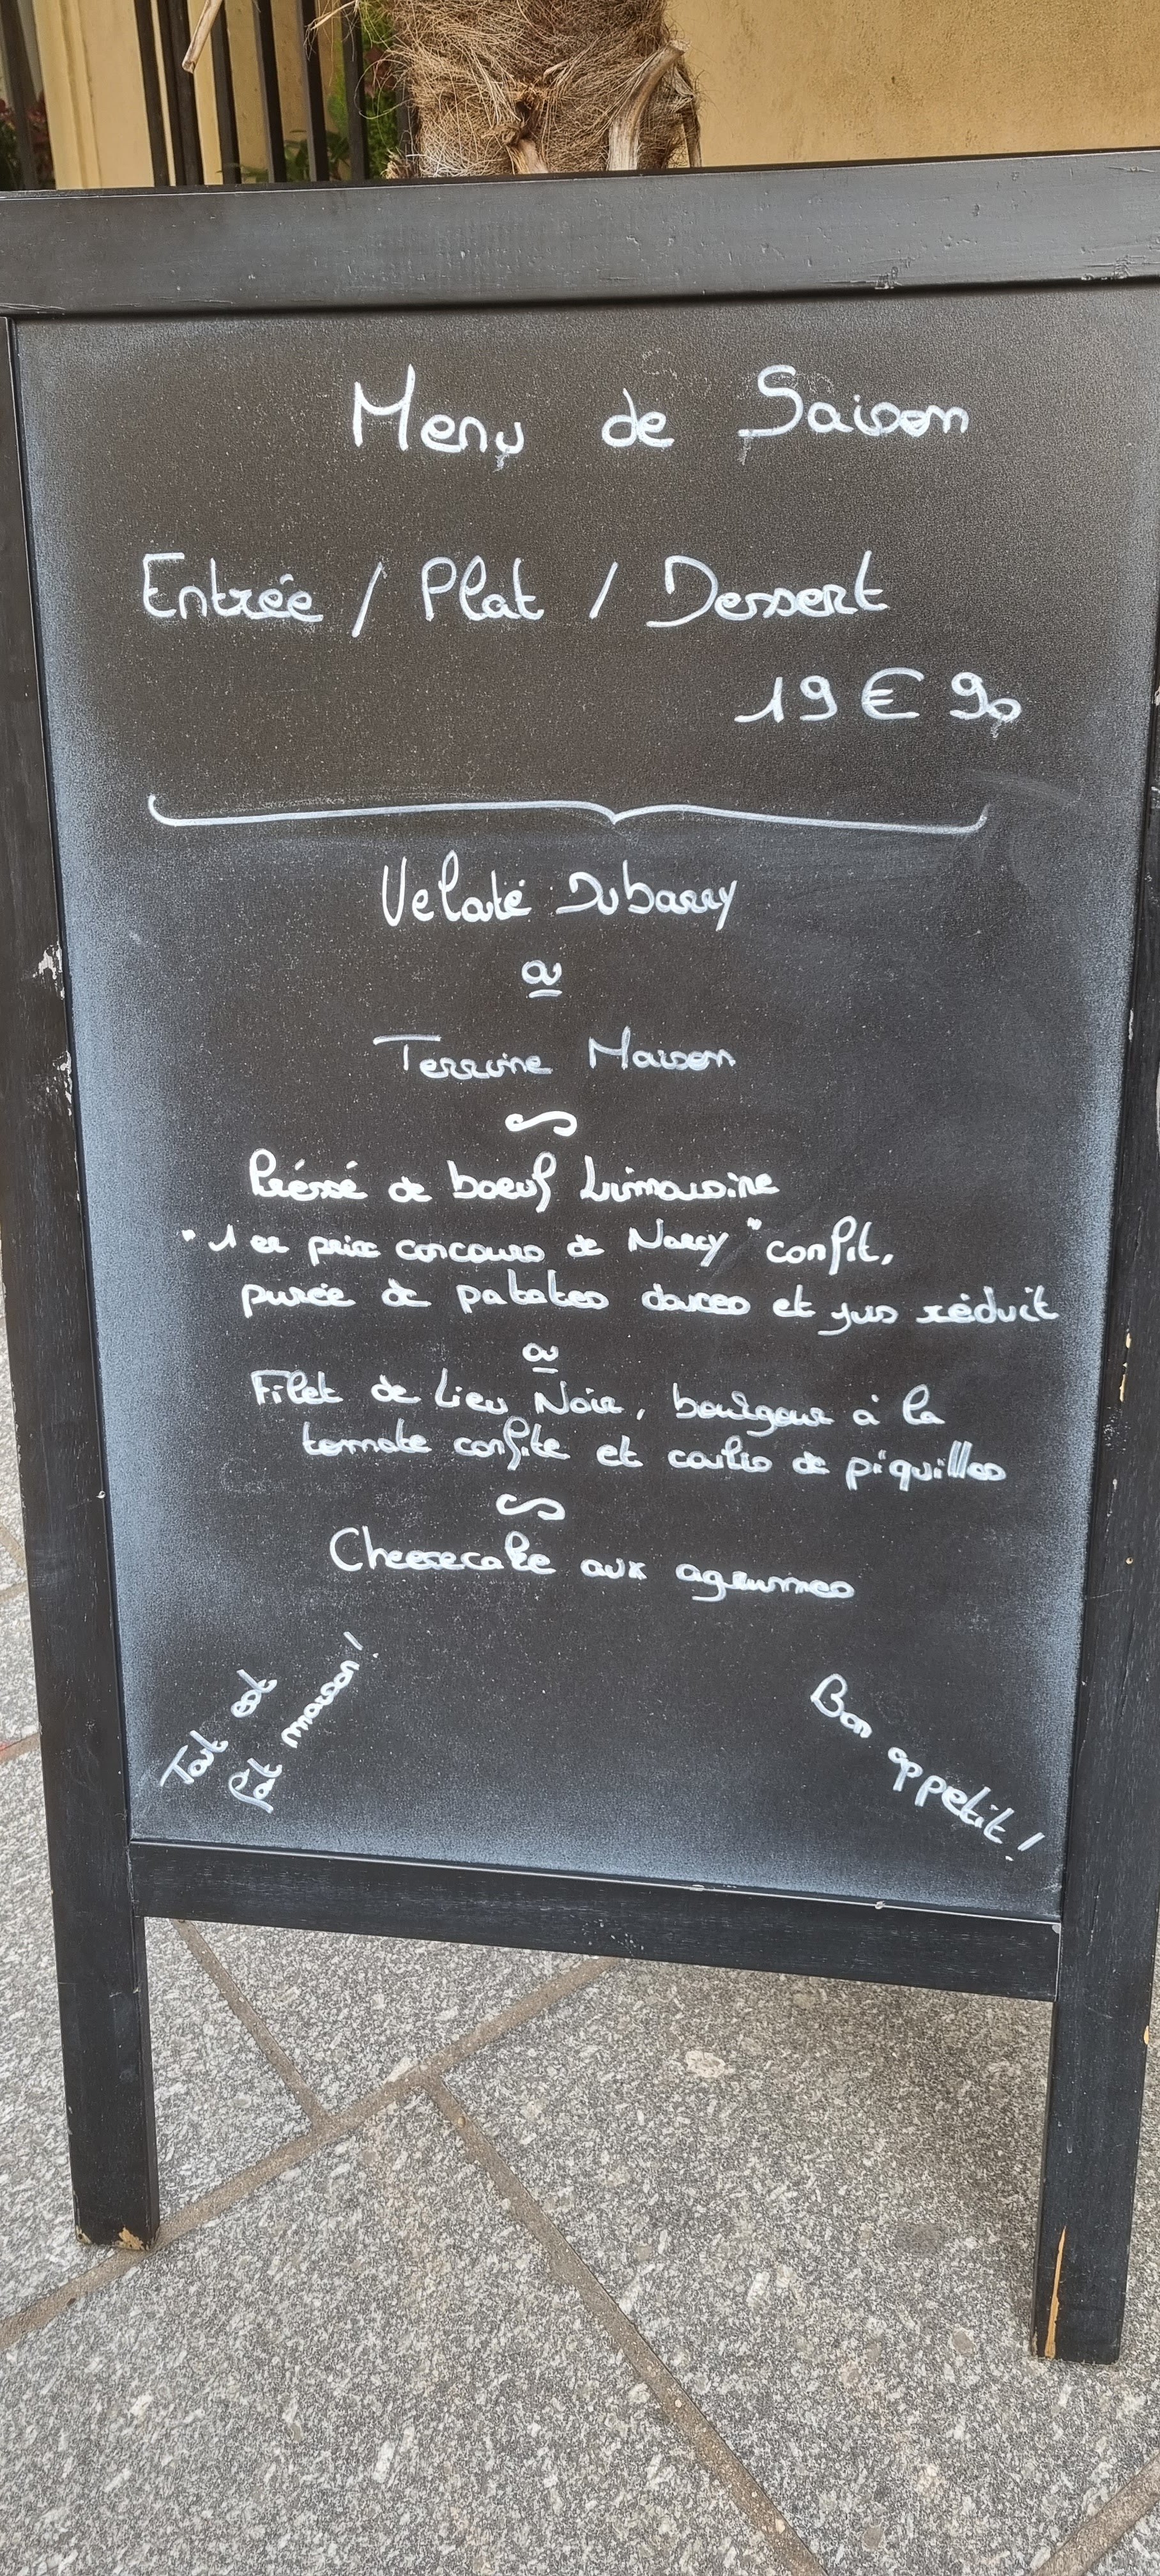 Menu de Saison
Entrée / Plat / Dessert
19 € 90
Velouté Dubarry
ou
Terrine Maison
Préssé de boeuf Limousine
"1er prix concours de Narcy" confit,
purée de patates douces et jus réduit
ou
Filet de Lieu Noir, boulgour à la
tomate confite et coulis de piquillos
Cheesecake aux agrumes
Tout est
fait maison!
Bon appetit!